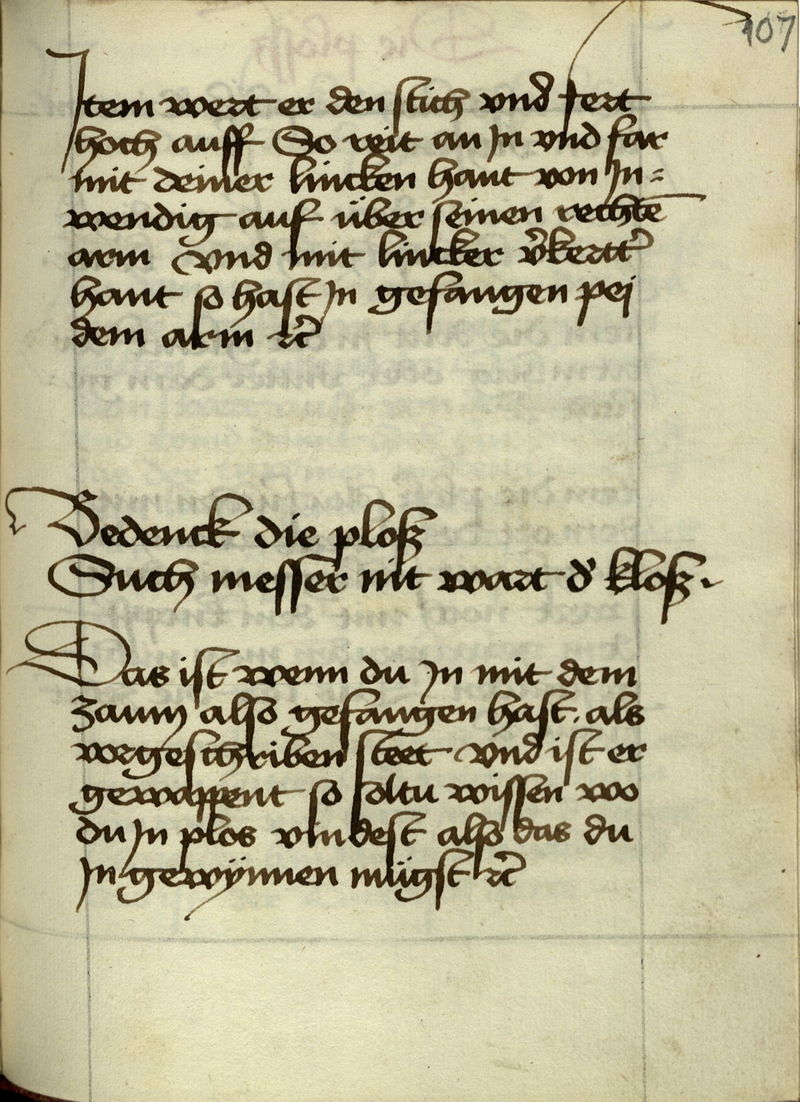 107
Item wert er den stich vnd fert
hoch auff So reit an Jn vnd far
mit deiner lincken hant von Jn=
wendig auf über seinen rechtē
arm vnd mit lincker v̉kertt̉
hant so hast Jn gefangen pei
dem arm rc̃
Bedenck die ploß
Such messer nit wart d̉ kloß.
Das ist wenn du Jn mit dem
zaum also gefangen hast. als
vorgeschriben steet vnd ist er
gewappent so soltu wissen wo
du Jn plos vindest also das du
Jn gewÿnnen mügst rc̃